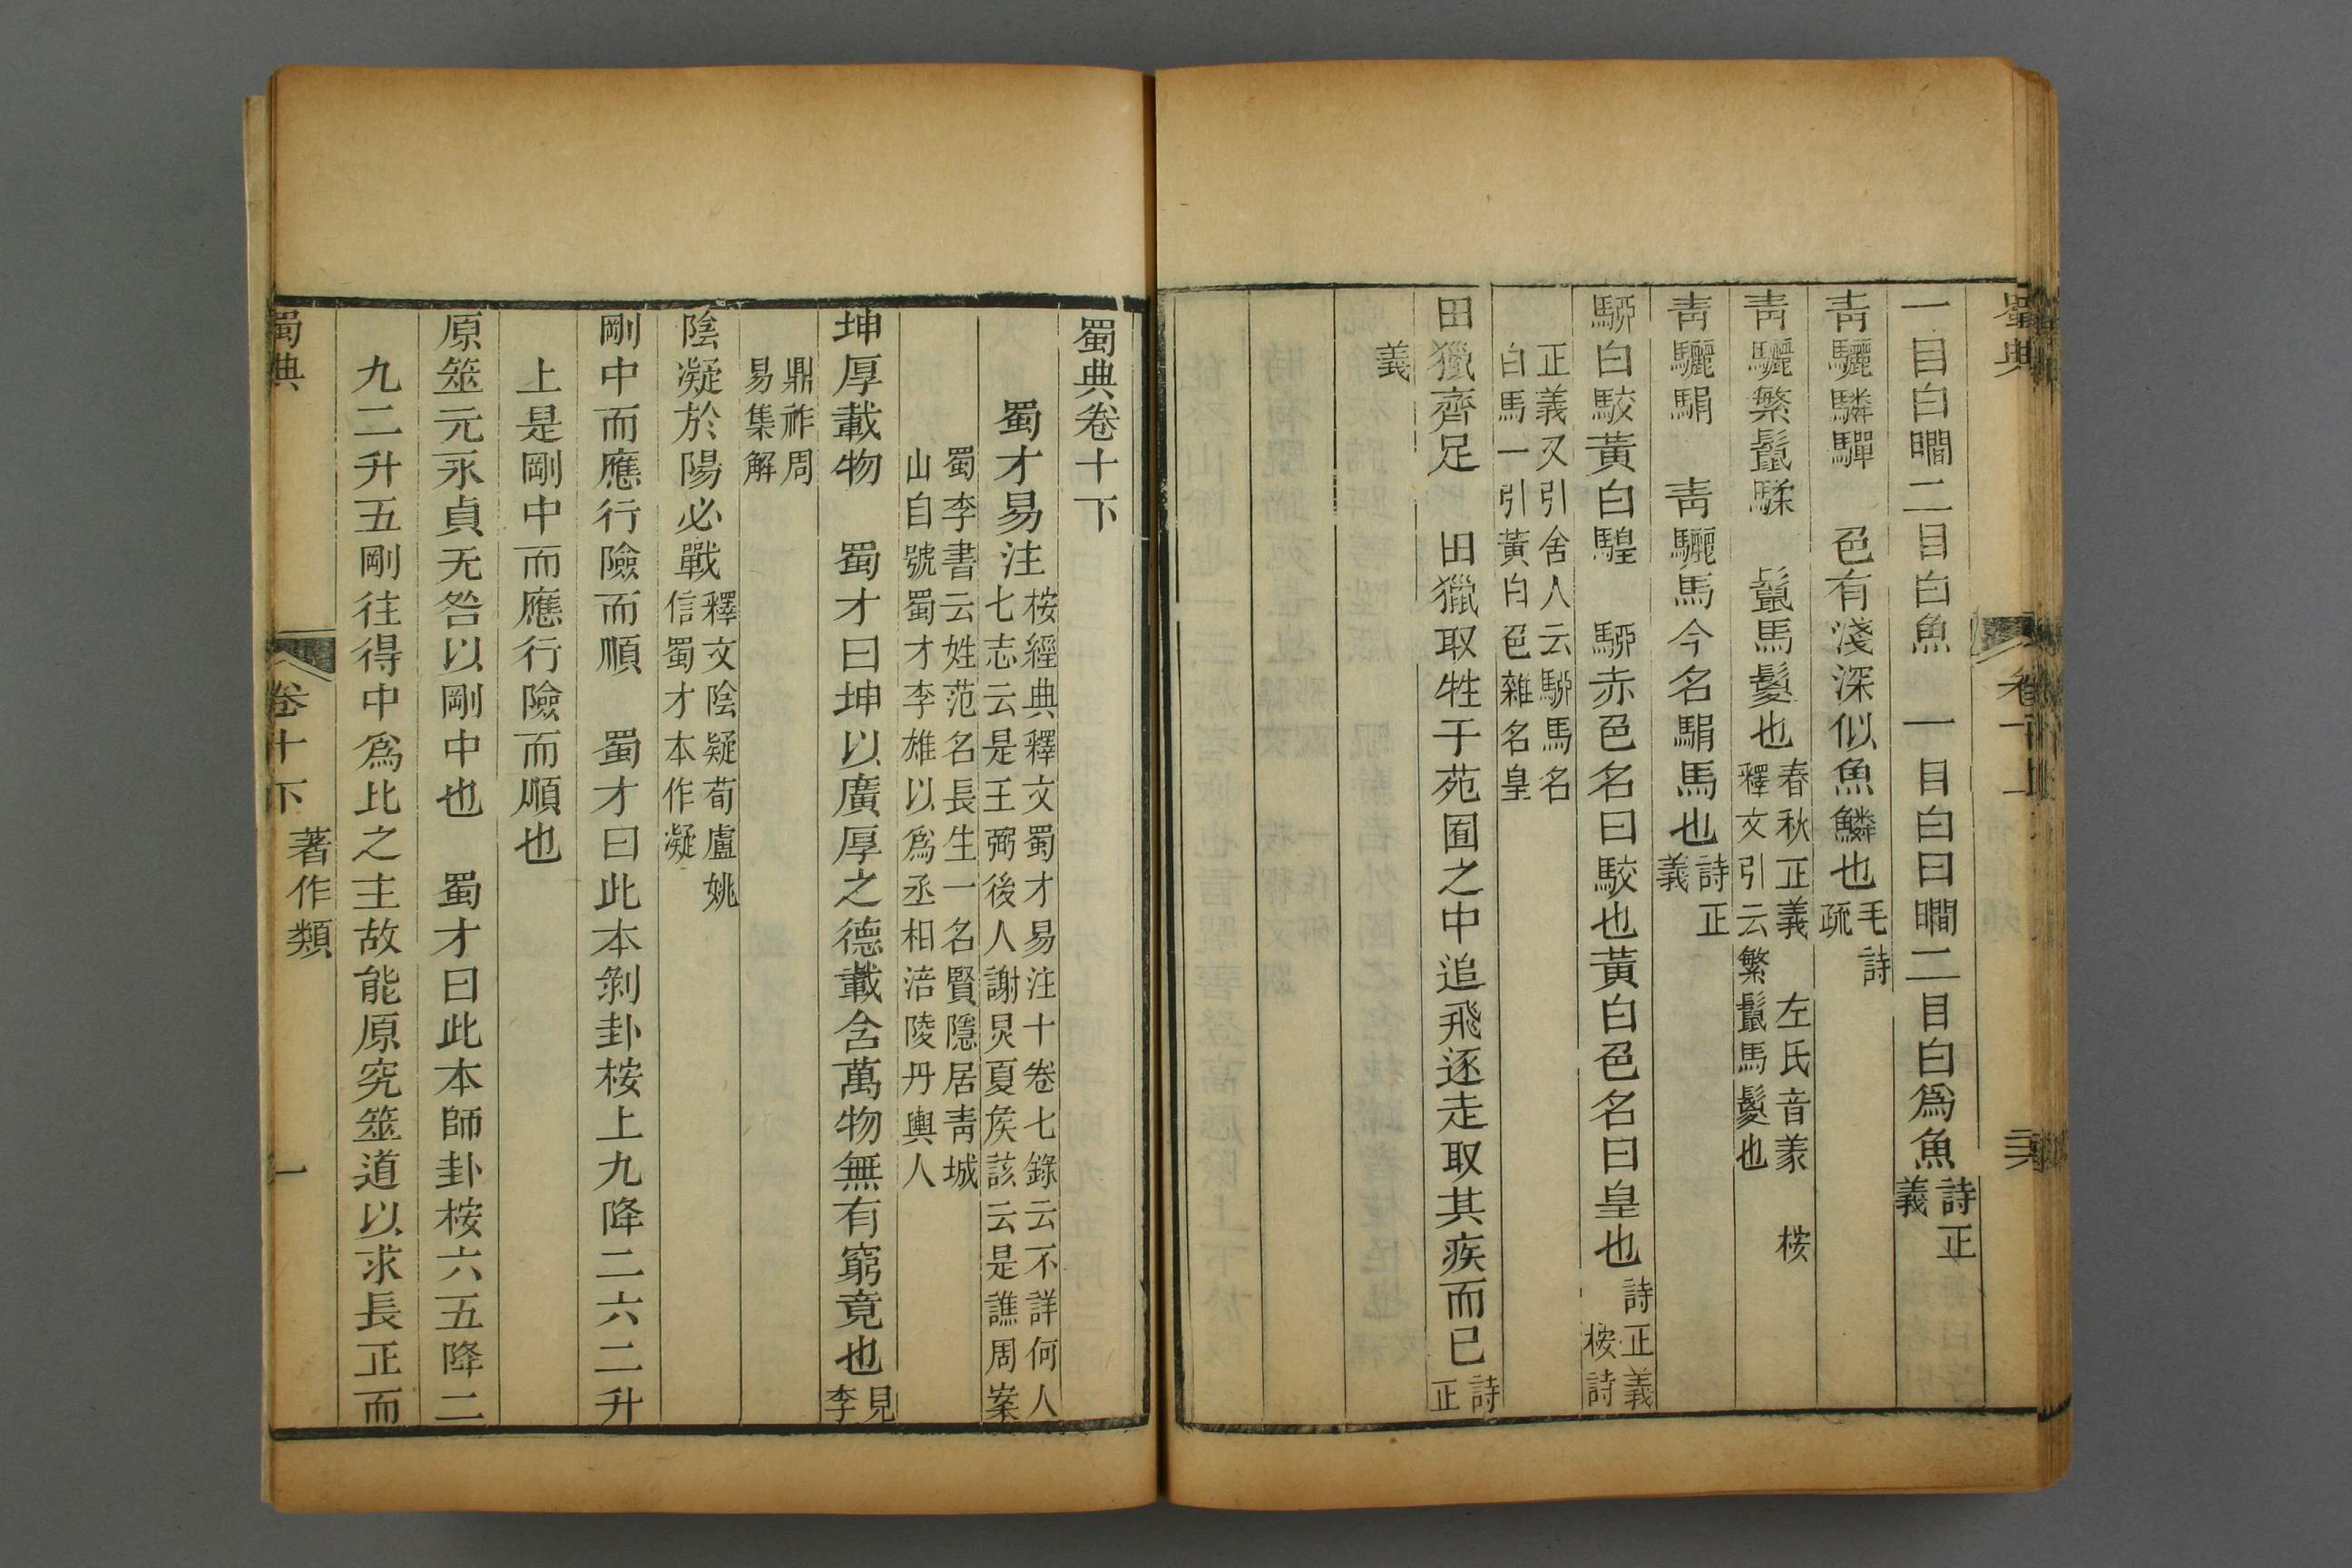 蜀典
卷十上
一目白瞷二目白魚　一目白曰瞷二目白爲魚詩正義
青驪驎驒　色有淺深似魚鱗也毛詩疏
青驪繁鬛騥　鬛馬鬉也春秋正義　左氏音義　桉釋文引云繁鬛馬鬉也
青驪駽　青驪馬今名駽馬也詩正義
騢白駮黃白騜　騢赤色名曰駮也黃白色名曰皇也詩正義桉詩
正義又引舍人云騢馬名白馬一引黃白色雜名皇
田獵齊足　田獵取牲于苑囿之中追飛逐走取其疾而已詩正
義
蜀典卷十下
蜀才易注桉經典釋文蜀才易注十卷七錄云不詳何人七志云是王弼後人謝炅夏矦該云是譙周案
蜀李書云姓范名長生一名賢隱居青城山自號蜀才李雄以爲丞相涪陵丹輿人
坤厚載物　蜀才曰坤以廣厚之德載含萬物無有窮竟也見李
鼎祚周易集解
陰凝於陽必戰釋文陰疑荀盧姚信蜀才本作凝
剛中而應行險而順　蜀才曰此本剝卦桉上九降二六二升
上是剛中而應行險而順也
原筮元永貞无咎以剛中也　蜀才曰此本師卦桉六五降二
九二升五剛往得中爲比之主故能原究筮道以求長正而
蜀典
卷十下
著作類
一